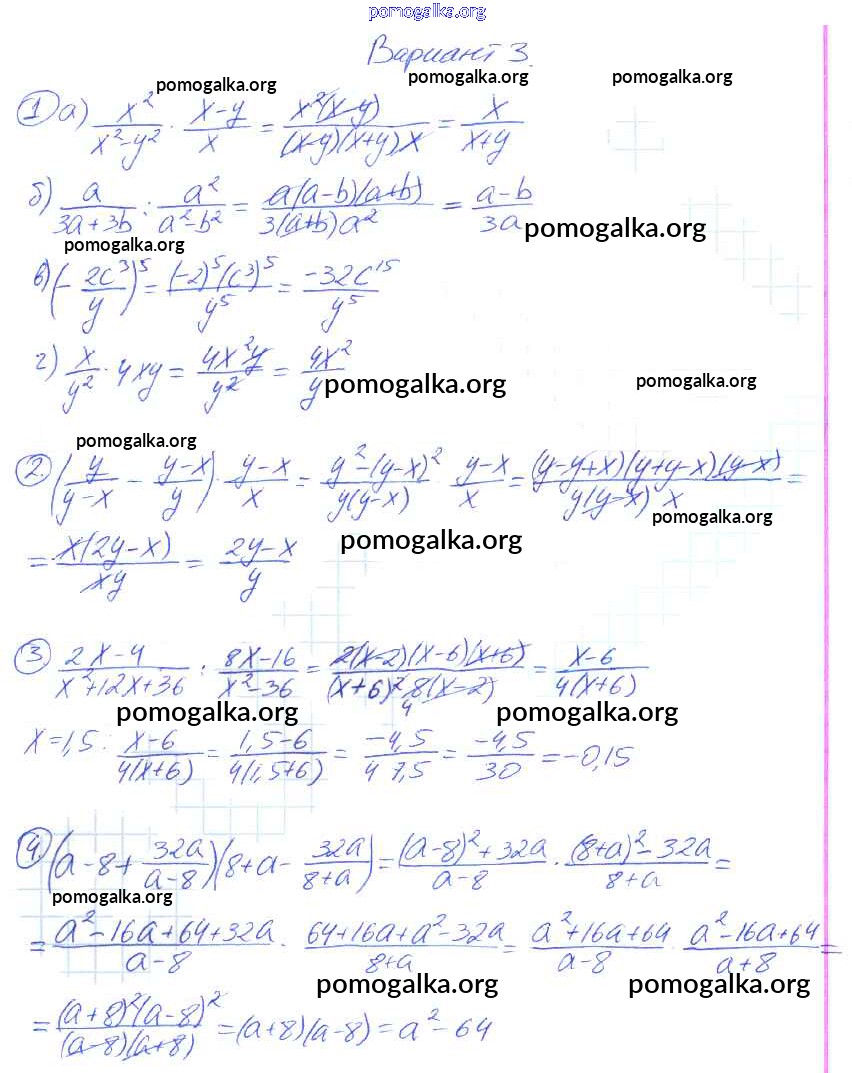 pomogalka.org
Вариант 3.
pomogalka.org pomogalka.org pomogalka.org
① а) x²/(x²-y²) · (x-y)/x = x²(x-y)/((x-y)(x+y)x) = x/(x+y)
б) a/(3a+3b) : a²/(a²-b²) = a(a-b)(a+b)/(3(a+b)a²) = (a-b)/(3a)
pomogalka.org
pomogalka.org
в) (-2c³/y)⁵ = (-2)⁵(c³)⁵/y⁵ = -32c¹⁵/y⁵
г) x/y² · 4xy = 4x²y/y² = 4x²/y
pomogalka.org pomogalka.org
pomogalka.org
② (y/(y-x) - (y-x)/y) · (y-x)/x = (y²-(y-x)²)/(y(y-x)) · (y-x)/x = (y-y+x)(y+y-x)(y-x)/(y(y-x) x) =
pomogalka.org
pomogalka.org
= x(2y-x)/(xy) = (2y-x)/y
③ (2x-4)/(x²+12x+36) : (8x-16)/(x²-36) = 2(x-2)(x-6)(x+6)/((x+6)² 8(x-2)) = (x-6)/(4(x+6))
4
pomogalka.org pomogalka.org
x=1,5: (x-6)/(4(x+6)) = (1,5-6)/(4(1,5+6)) = -4,5/(4 7,5) = -4,5/30 = -0,15
④ (a-8+32a/(a-8))(8+a-32a/(8+a)) = ((a-8)²+32a)/(a-8) · ((8+a)²-32a)/(8+a) =
pomogalka.org
= (a²-16a+64+32a)/(a-8) · (64+16a+a²-32a)/(8+a) = (a²+16a+64)/(a-8) · (a²-16a+64)/(a+8) =
pomogalka.org pomogalka.org
= (a+8)²(a-8)²/((a-8)(a+8)) = (a+8)(a-8) = a²-64